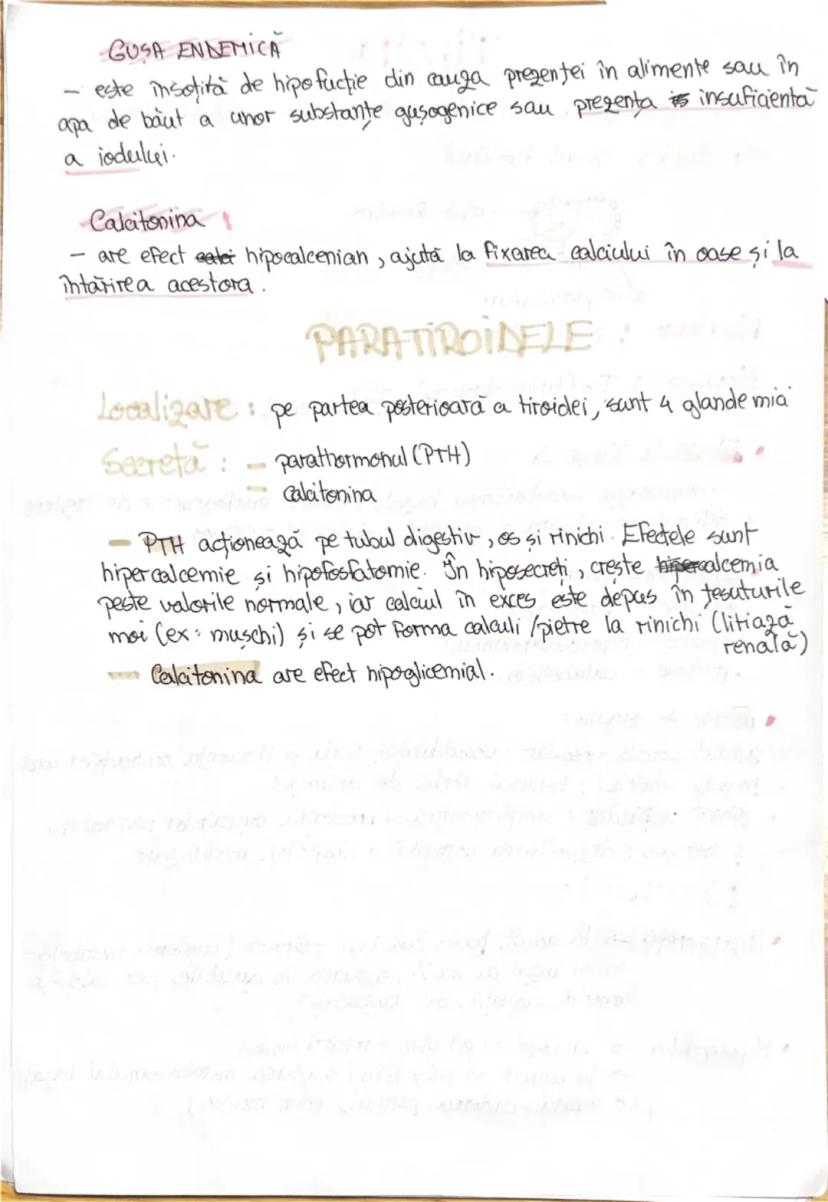 GUȘA ENDEMICĂ
- este însoțită de hipofucție din cauza prezenței în alimente sau în
apa de băut a unor substanțe gușogenice sau prezența insuficientă
a iodului.
Calcitonina
- are efect hipocalcenian, ajută la fixarea calciului în oase și la
întărirea acestora.
PARATIROIDELE
Localizare: pe partea posterioară a tiroidei, sunt 4 glande mici
Secretă: - parathormonul (PTH)
- calcitonina
- PTH acționează pe tubul digestiv, os și rinichi. Efectele sunt
hipercalcemie și hipofosfatomie. În hiposecreti, crește hipercalcemia
peste valorile normale, iar calciul în exces este depus în țesuturile
moi (ex: mușchi) și se pot forma calculi /pietre la rinichi (litiază
renală)
- Calcitonina are efect hipoglicemial.